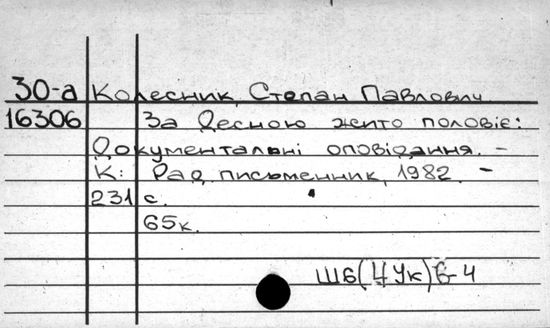 30-а Колесник, Степан Павлович
16306 За Десною жито половіє:
Документальні оповідання. –
К.: Рад. письменник, 1982. –
231 с.
65к.
Ш6(4Ук)6-4